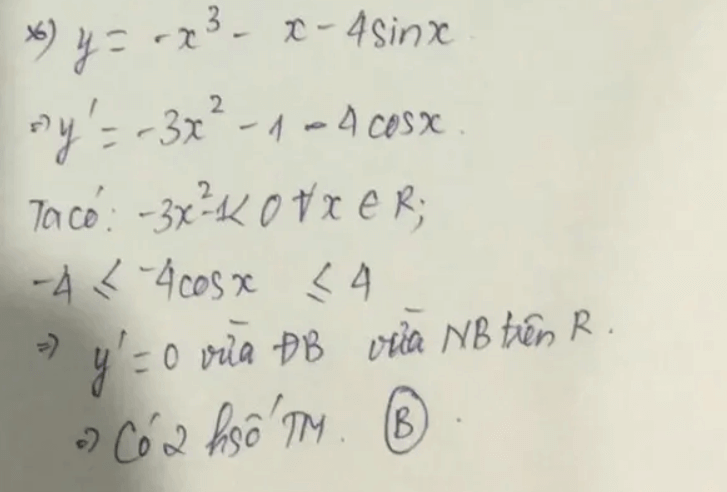 *) y = -x³ - x - 4sinx
⇒ y' = -3x² - 1 - 4cosx.
Ta có: -3x²-1< 0 ∀x ∈ R;
-4 ≤ -4cosx ≤ 4
⇒ y' = 0 vừa ĐB vừa NB trên R.
⇒ Có 2 hsố TM. B.